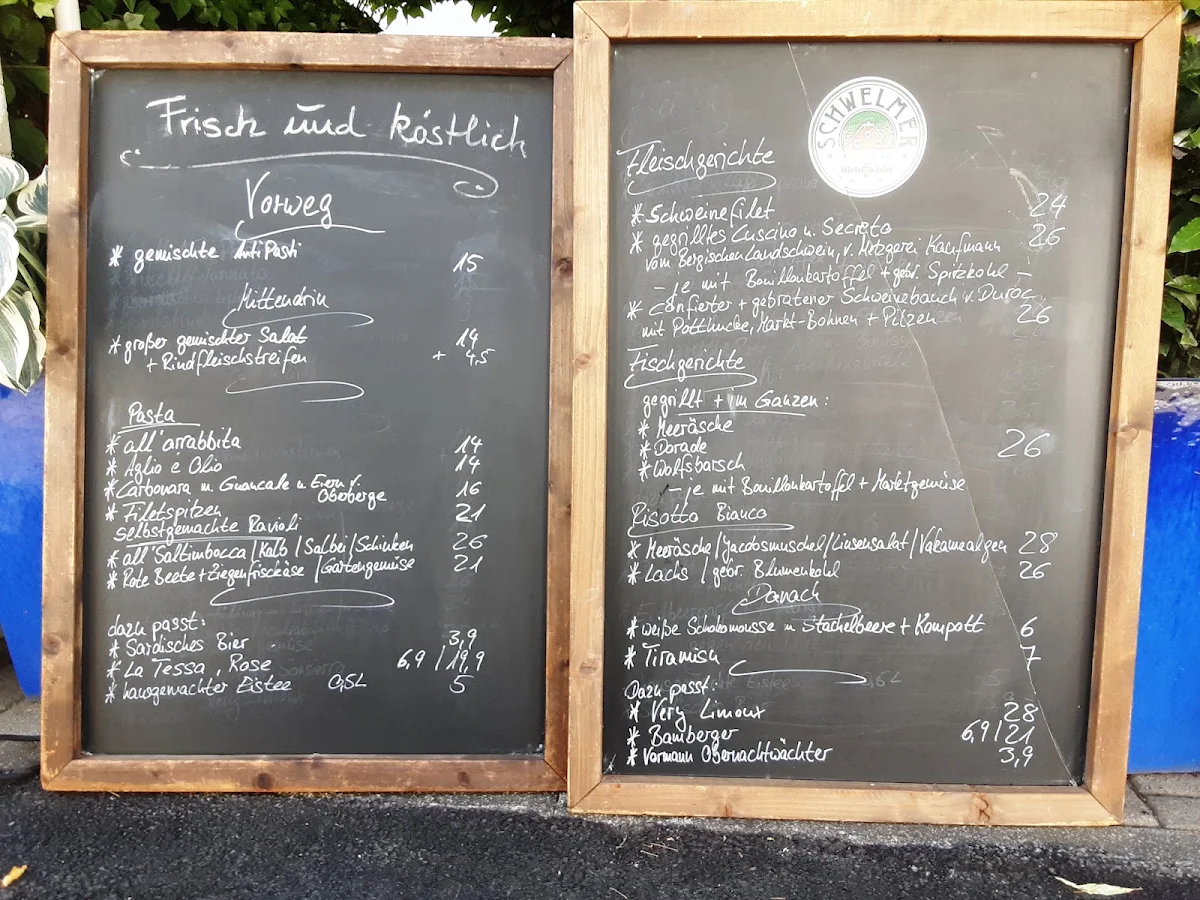 Frisch und köstlich
Vorweg
* gemischte AntiPasti 15
Mittendrin
* großer gemischter Salat 14
+ Rindfleischstreifen + 4,5
Pasta
* all'arrabbita 14
* Aglio e Olio 14
* Carbonara m. Guancale u. Eiern v.
Oberberge 16
* Filetspitzen 21
selbstgemachte Ravioli
* all'Saltimbocca / Kalb / Salbei / Schinken 26
* Rote Beete + Ziegenfrischkäse / Gartengemüse 21
dazu passt:
* Sardisches Bier 3,9
* La Tessa, Rose 6,9 / 19,9
* hausgemachter Eistee 0,5L 5
SCHWELMER
Fleischgerichte
* Schweinefilet 24
* gegrilltes Cuscino u. Secreto 26
vom Bergischen Landschwein, v. Metzgerei Kaufmann
- je mit Bouillonkartoffel + gebr. Spitzkohl -
* confierter + gebratener Schweinebauch v. Duroc
mit Potthucke, Markt-Bohnen + Pilzen 26
Fischgerichte
gegrillt + im Ganzen:
* Meeräsche
* Dorade 26
* Wolfsbarsch
- je mit Bouillonkartoffel + Marktgemüse
Risotto Bianco
* Meeräsche / Jacobsmuschel / Linsensalat / Vakamealgen 28
* Lachs / gebr. Blumenkohl 26
Danach
* weiße Schokomousse m Stachelbeere + Kompott 6
* Tiramisu 7
Dazu passt:
* Very Limoux 28
* Bamberger 6,9 / 21
* Vormann Obernachtwächter 3,9